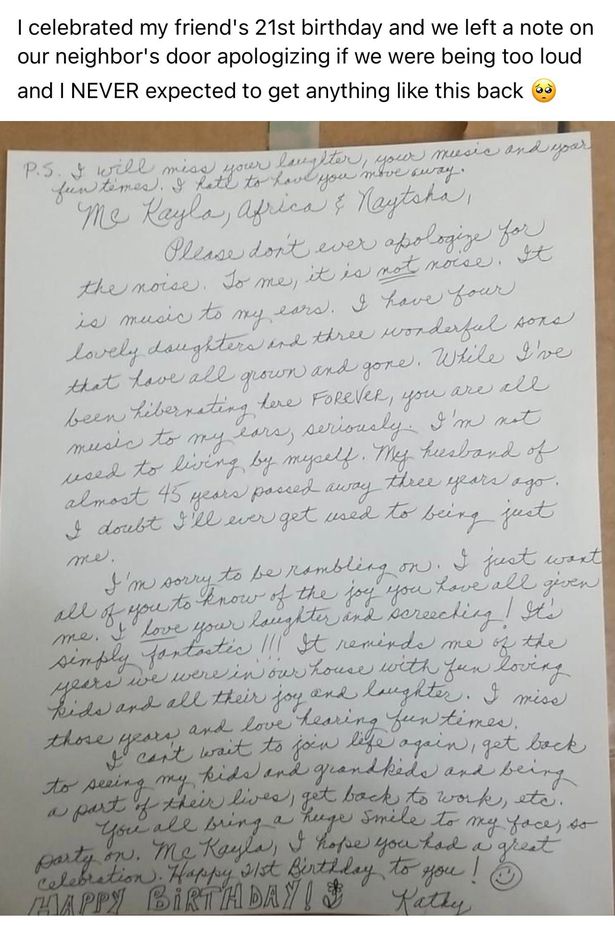 I celebrated my friend's 21st birthday and we left a note on
our neighbor's door apologizing if we were being too loud
and I NEVER expected to get anything like this back 🥺
P.S. I will miss your laughter, your music and your
fun times. I hate to have you move away.
McKayla, Africa & Naytsha,
Please don't ever apologize for
the noise. To me, it is not noise. It
is music to my ears. I have four
lovely daughters and three wonderful sons
that have all grown and gone. While I've
been hibernating here FOREVER, you are all
music to my ears, seriously. I'm not
used to living by myself. My husband of
almost 45 years passed away three years ago.
I doubt I'll ever get used to being just
me.
I'm sorry to be rambling on. I just want
all of you to know of the joy you have all given
me. I love your laughter and screeching! It's
simply fantastic!!! It reminds me of the
years we were in our house with fun loving
kids and all their joy and laughter. I miss
those years and love hearing fun times.
I can't wait to join life again, get back
to seeing my kids and grandkids and being
a part of their lives, get back to work, etc.
You all bring a huge smile to my face, so
party on. McKayla, I hope you had a great
celebration. Happy 21st Birthday to you! ☺
HAPPY BIRTHDAY! Kathy